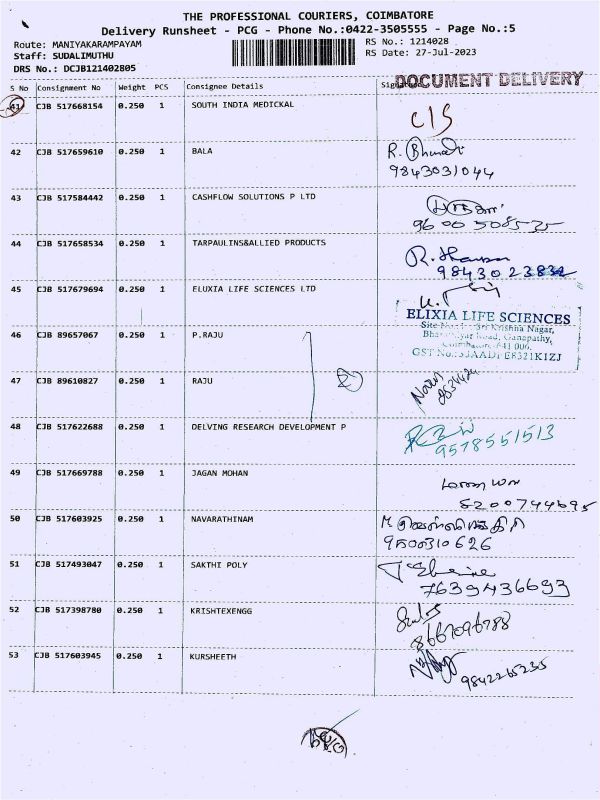 THE PROFESSIONAL COURIERS, COIMBATORE
Delivery Runsheet - PCG - Phone No.:0422-3505555 - Page No.:5
Route: MANIYAKARAMPAYAM
RS No.: 1214028
Staff: SUDALIMUTHU
RS Date: 27-Jul-2023
DRS No.: DCJB121402805
DOCUMENT DELIVERY
S No Consignment No Weight PCS Consignee Details
41 CJB 517668154 0.250 1 SOUTH INDIA MEDICKAL C/S
42 CJB 517659610 0.250 1 BALA
9843031044
43 CJB 517584442 0.250 1 CASHFLOW SOLUTIONS P LTD
44 CJB 517658534 0.250 1 TARPAULINS&ALLIED PRODUCTS
45 CJB 517679694 0.250 1 ELUXIA LIFE SCIENCES LTD
ELIXIA LIFE SCIENCES
Sri Krishna Nagar,
Road, Ganapathy,
46 CJB 89657067 0.250 1 P.RAJU
47 CJB 89610827 0.250 1 RAJU
48 CJB 517622688 0.250 1 DELVING RESEARCH DEVELOPMENT P
9578551513
49 CJB 517669788 0.250 1 JAGAN MOHAN
8200744695
50 CJB 517603925 0.250 1 NAVARATHINAM
51 CJB 517493047 0.250 1 SAKTHI POLY
7639436693
52 CJB 517398780 0.250 1 KRISHTEXENGG
8667096788
53 CJB 517603945 0.250 1 KURSHEETH
9842265235